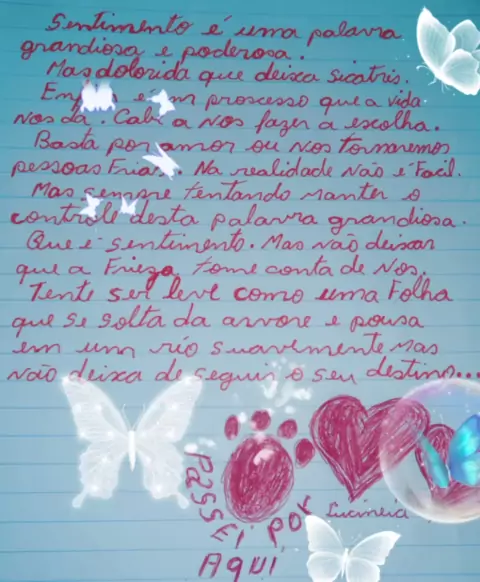 Sentimento é uma palavra
grandiosa e poderosa.
Mas dolorida que deixa sicatris.
é um proscesso que a vida
Nos da. Cabi a Nos fazer a escolha.
Basta por amor ou Nos tornaremos
pessoas Frias. Na realidade Não é Facil.
Mas sempre tentando manter o
controle desta palavra grandiosa.
Que é sentimento. Mas não deixar
que a Frieza tome conta de Nos.
Tente ser leve como uma Folha
que se solta da arvore e pousa
em um rio suavemente mas
não deixa de seguir o seu destino...
PASSEI POR
AQUI
Lucineia